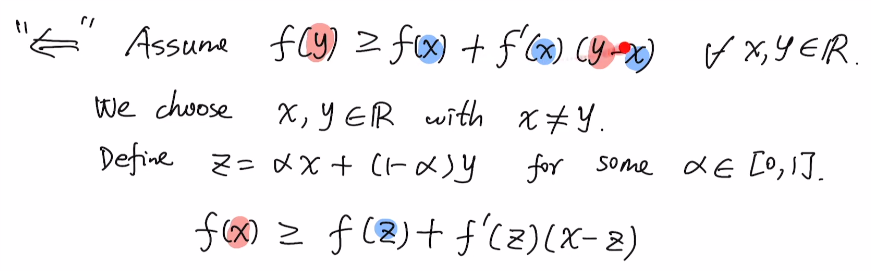 "⇐" Assume f(y) ≥ f(x) + f'(x) (y-x) ∀ x, y ∈ ℝ.
We choose x, y ∈ ℝ with x ≠ y.
Define z = αx + (1-α)y for some α ∈ [0,1].
f(x) ≥ f(z) + f'(z)(x-z)